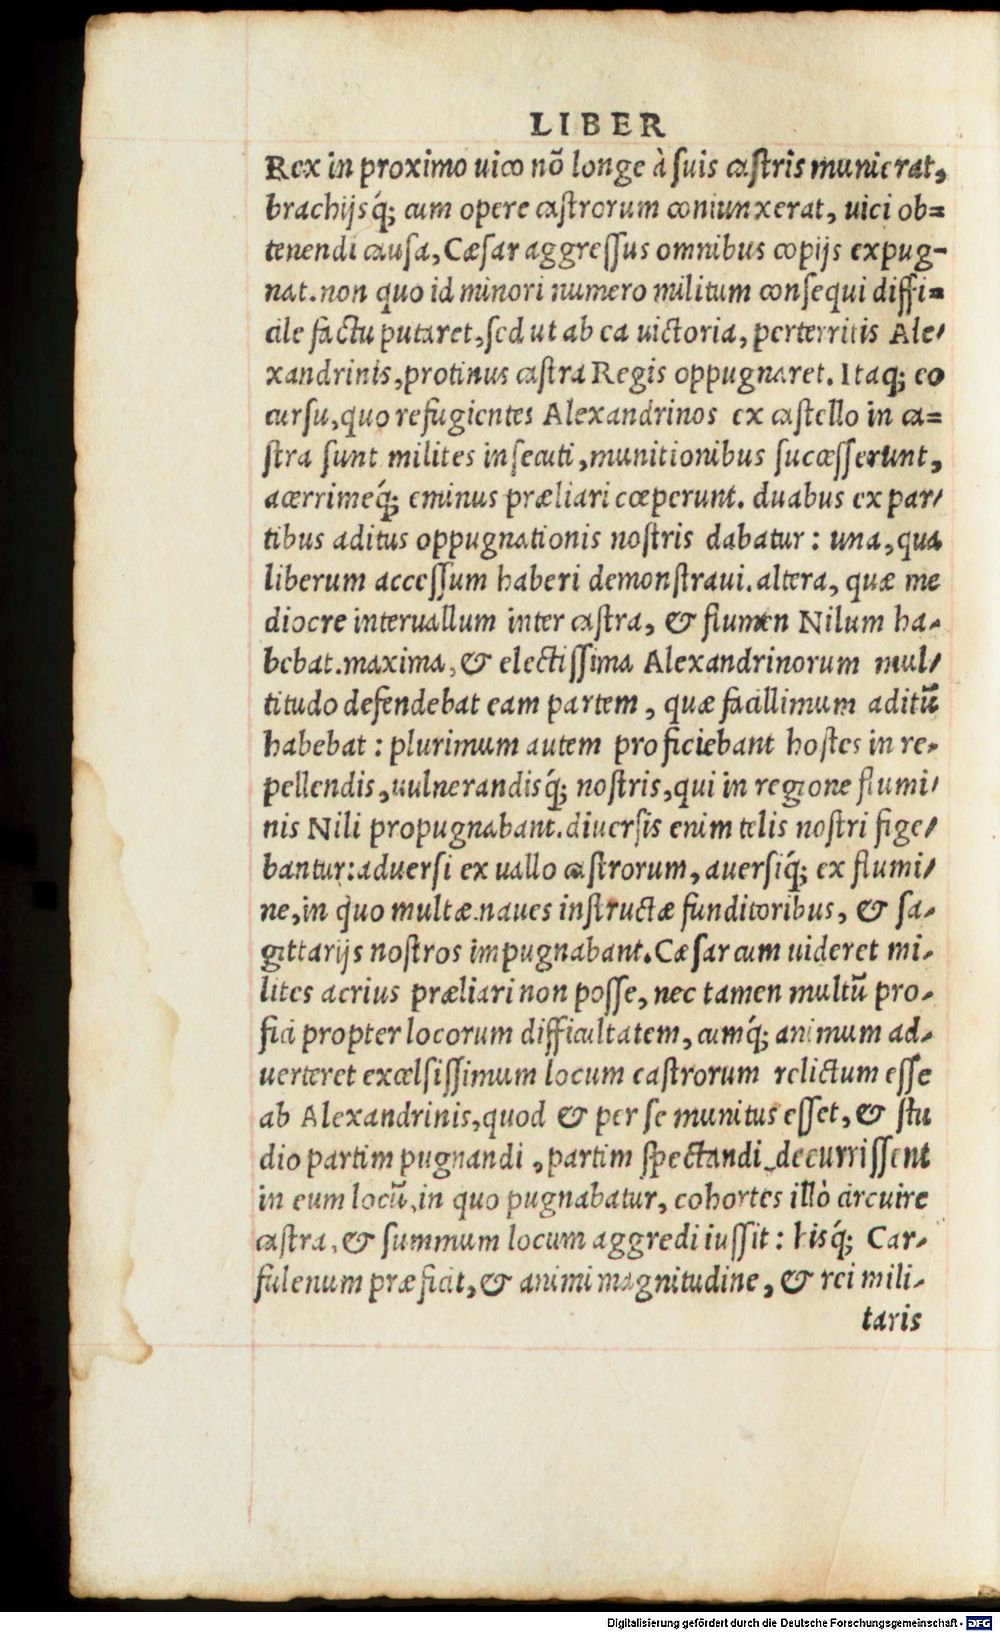 LIBER
Rex in proximo uico nõ longe à suis castris munierat,
brachijsq́; cum opere castrorum coniunxerat, uici ob=
tenendi causa, Cæsar aggressus omnibus copijs expug-
nat. non quo id minori numero militum consequi diffi=
cile factu putaret, sed ut ab ea uictoria, perterritis Ale/
xandrinis, protinus castra Regis oppugnaret. Itaq; eo
cursu, quo refugientes Alexandrinos ex castello in ca=
stra sunt milites insecuti, munitionibus successerunt,
acerrimeq́; eminus præliari cœperunt. duabus ex par/
tibus aditus oppugnationis nostris dabatur: una, qua
liberum accessum haberi demonstraui. altera, quæ me
diocre interuallum inter castra, & flumen Nilum ha-
bebat. maxima, & electissima Alexandrinorum mul/
titudo defendebat eam partem, quæ facillimum aditũ
habebat: plurimum autem proficiebant hostes in re-
pellendis, uulnerandisq́; nostris, qui in regione flumi/
nis Nili propugnabant. diuersis enim telis nostri fige/
bantur: aduersi ex uallo castrorum, auersiq́; ex flumi/
ne, in quo multæ naues instructæ funditoribus, & sa-
gittarijs nostros impugnabant. Cæsar cum uideret mi-
lites acrius præliari non posse, nec tamen multũ pro-
fici propter locorum difficultatem, cumq́; animum ad-
uerteret excelsissimum locum castrorum relictum esse
ab Alexandrinis, quod & per se munitus esset, & stu
dio partim pugnandi, partim spectandi decurrissent
in eum locũ, in quo pugnabatur, cohortes illò circuire
castra, & summum locum aggredi iussit: hisq́; Car-
fulenum præficit, & animi magnitudine, & rei mili-
taris
Digitalisierung gefördert durch die Deutsche Forschungsgemeinschaft - DFG